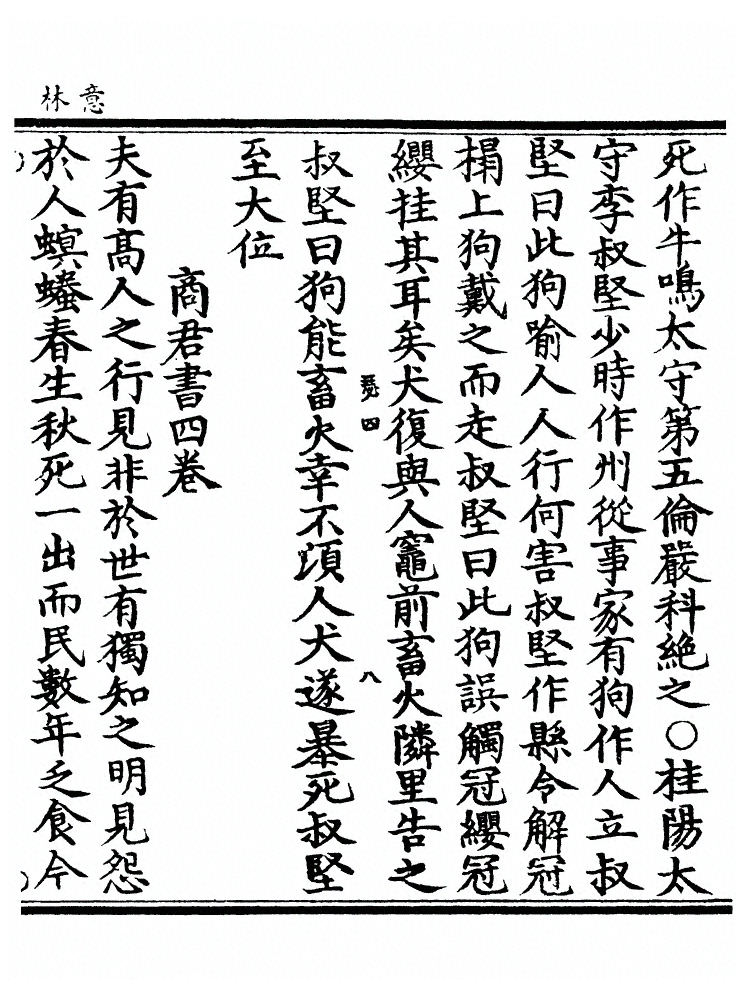 意林
死作牛鳴太守第五倫嚴科絶之〇桂陽太
守李叔堅少時作州從事家有狗作人立叔
堅曰此狗喻人人行何害叔堅作縣令解冠
榻上狗戴之而走叔堅曰此狗誤觸冠纓冠
纓挂其耳矣犬復與人竈前畜火隣里告之
四
八
叔堅曰狗能畜火幸不湏人犬遂暴死叔堅
至大位
商君書四卷
夫有髙人之行見非於世有獨知之明見怨
於人螟春生秋死一出而民數年乏食今